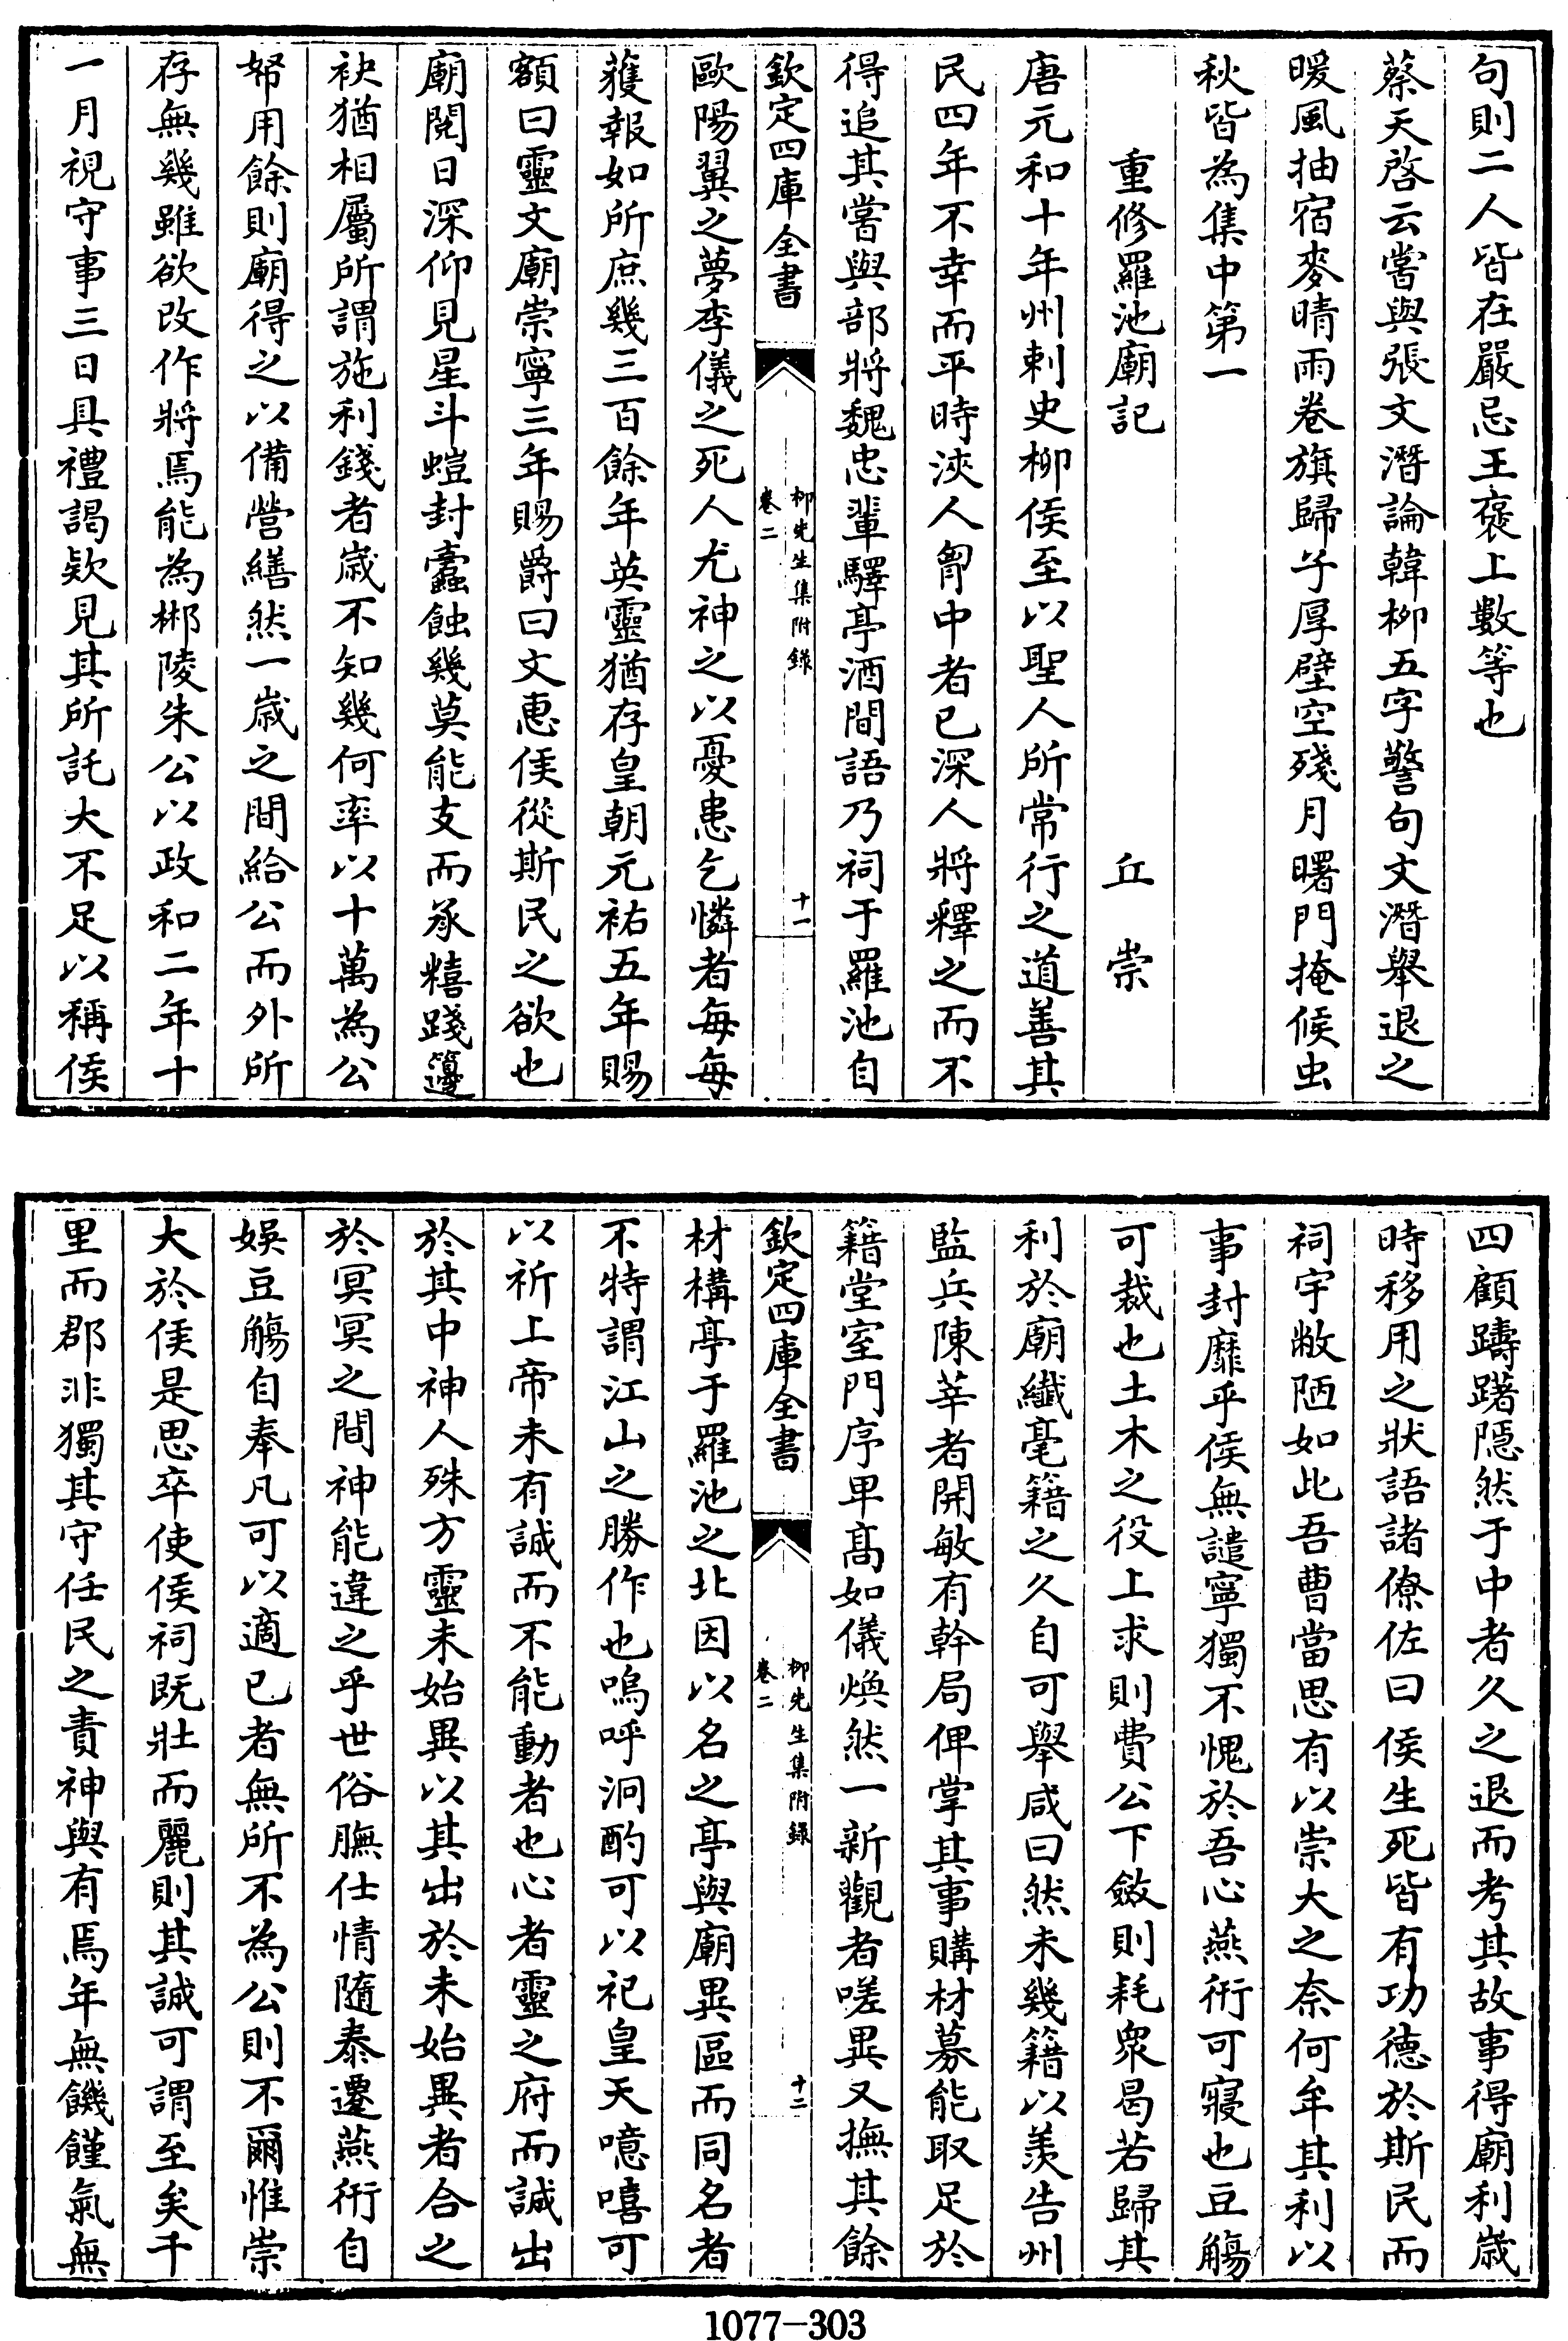 句則二人皆在嚴忌王褒上數等也
蔡天啓云嘗與張文潛論韓柳五字警句文潛舉退之
暖風抽宿麥晴雨卷旗歸子厚壁空殘月曙門掩候虫
秋皆為集中第一
重修羅池廟記
丘崇
唐元和十年州刺史柳侯至以聖人所常行之道善其
民四年不幸而平時浹人胷中者已深人將釋之而不
得追其嘗與部將魏忠輩驛亭酒間語乃祠于羅池自
欽定四庫全書
柳先生集附錄
卷二
十一
歐陽翼之夢李儀之死人尤神之以憂患乞憐者每每
獲報如所庶幾三百餘年英靈猶存皇朝元祐五年賜
額曰靈文廟崇寧三年賜爵曰文惠侯從斯民之欲也
廟閱日深仰見星斗螘封蠹蝕幾莫能支而承糦踐籩
袂猶相屬所謂施利錢者歲不知幾何率以十萬為公
帑用餘則廟得之以備營繕然一歲之間給公而外所
存無幾雖欲改作將焉能為郴陵朱公以政和二年十
一月視守事三日具禮謁欵見其所託大不足以稱侯
四顧躊躇隱然于中者久之退而考其故事得廟利歲
時移用之狀語諸僚佐曰侯生死皆有功德於斯民而
祠宇敝陋如此吾曹當思有以崇大之奈何牟其利以
事封靡乎侯無譴寧獨不愧於吾心燕衎可寢也豆觴
可裁也土木之役上求則費公下斂則耗衆曷若歸其
利於廟纎毫籍之久自可舉咸曰然未幾籍以羡告州
監兵陳莘者開敏有幹局俾掌其事購材募能取足於
籍堂室門序卑髙如儀煥然一新觀者嗟異又撫其餘
欽定四庫全書
柳先生集附錄
卷二
十二
材構亭于羅池之北因以名之亭與廟異區而同名者
不特謂江山之勝作也嗚呼洞酌可以祀皇天噫嘻可
以祈上帝未有誠而不能動者也心者靈之府而誠出
於其中神人殊方靈未始異以其出於未始異者合之
於冥冥之間神能違之乎世俗膴仕情隨泰遷燕衎自
娛豆觴自奉凡可以適已者無所不為公則不爾惟崇
大於侯是思卒使侯祠既壯而麗則其誠可謂至矣千
里而郡非獨其守任民之責神與有焉年無饑饉氣無
1077-303